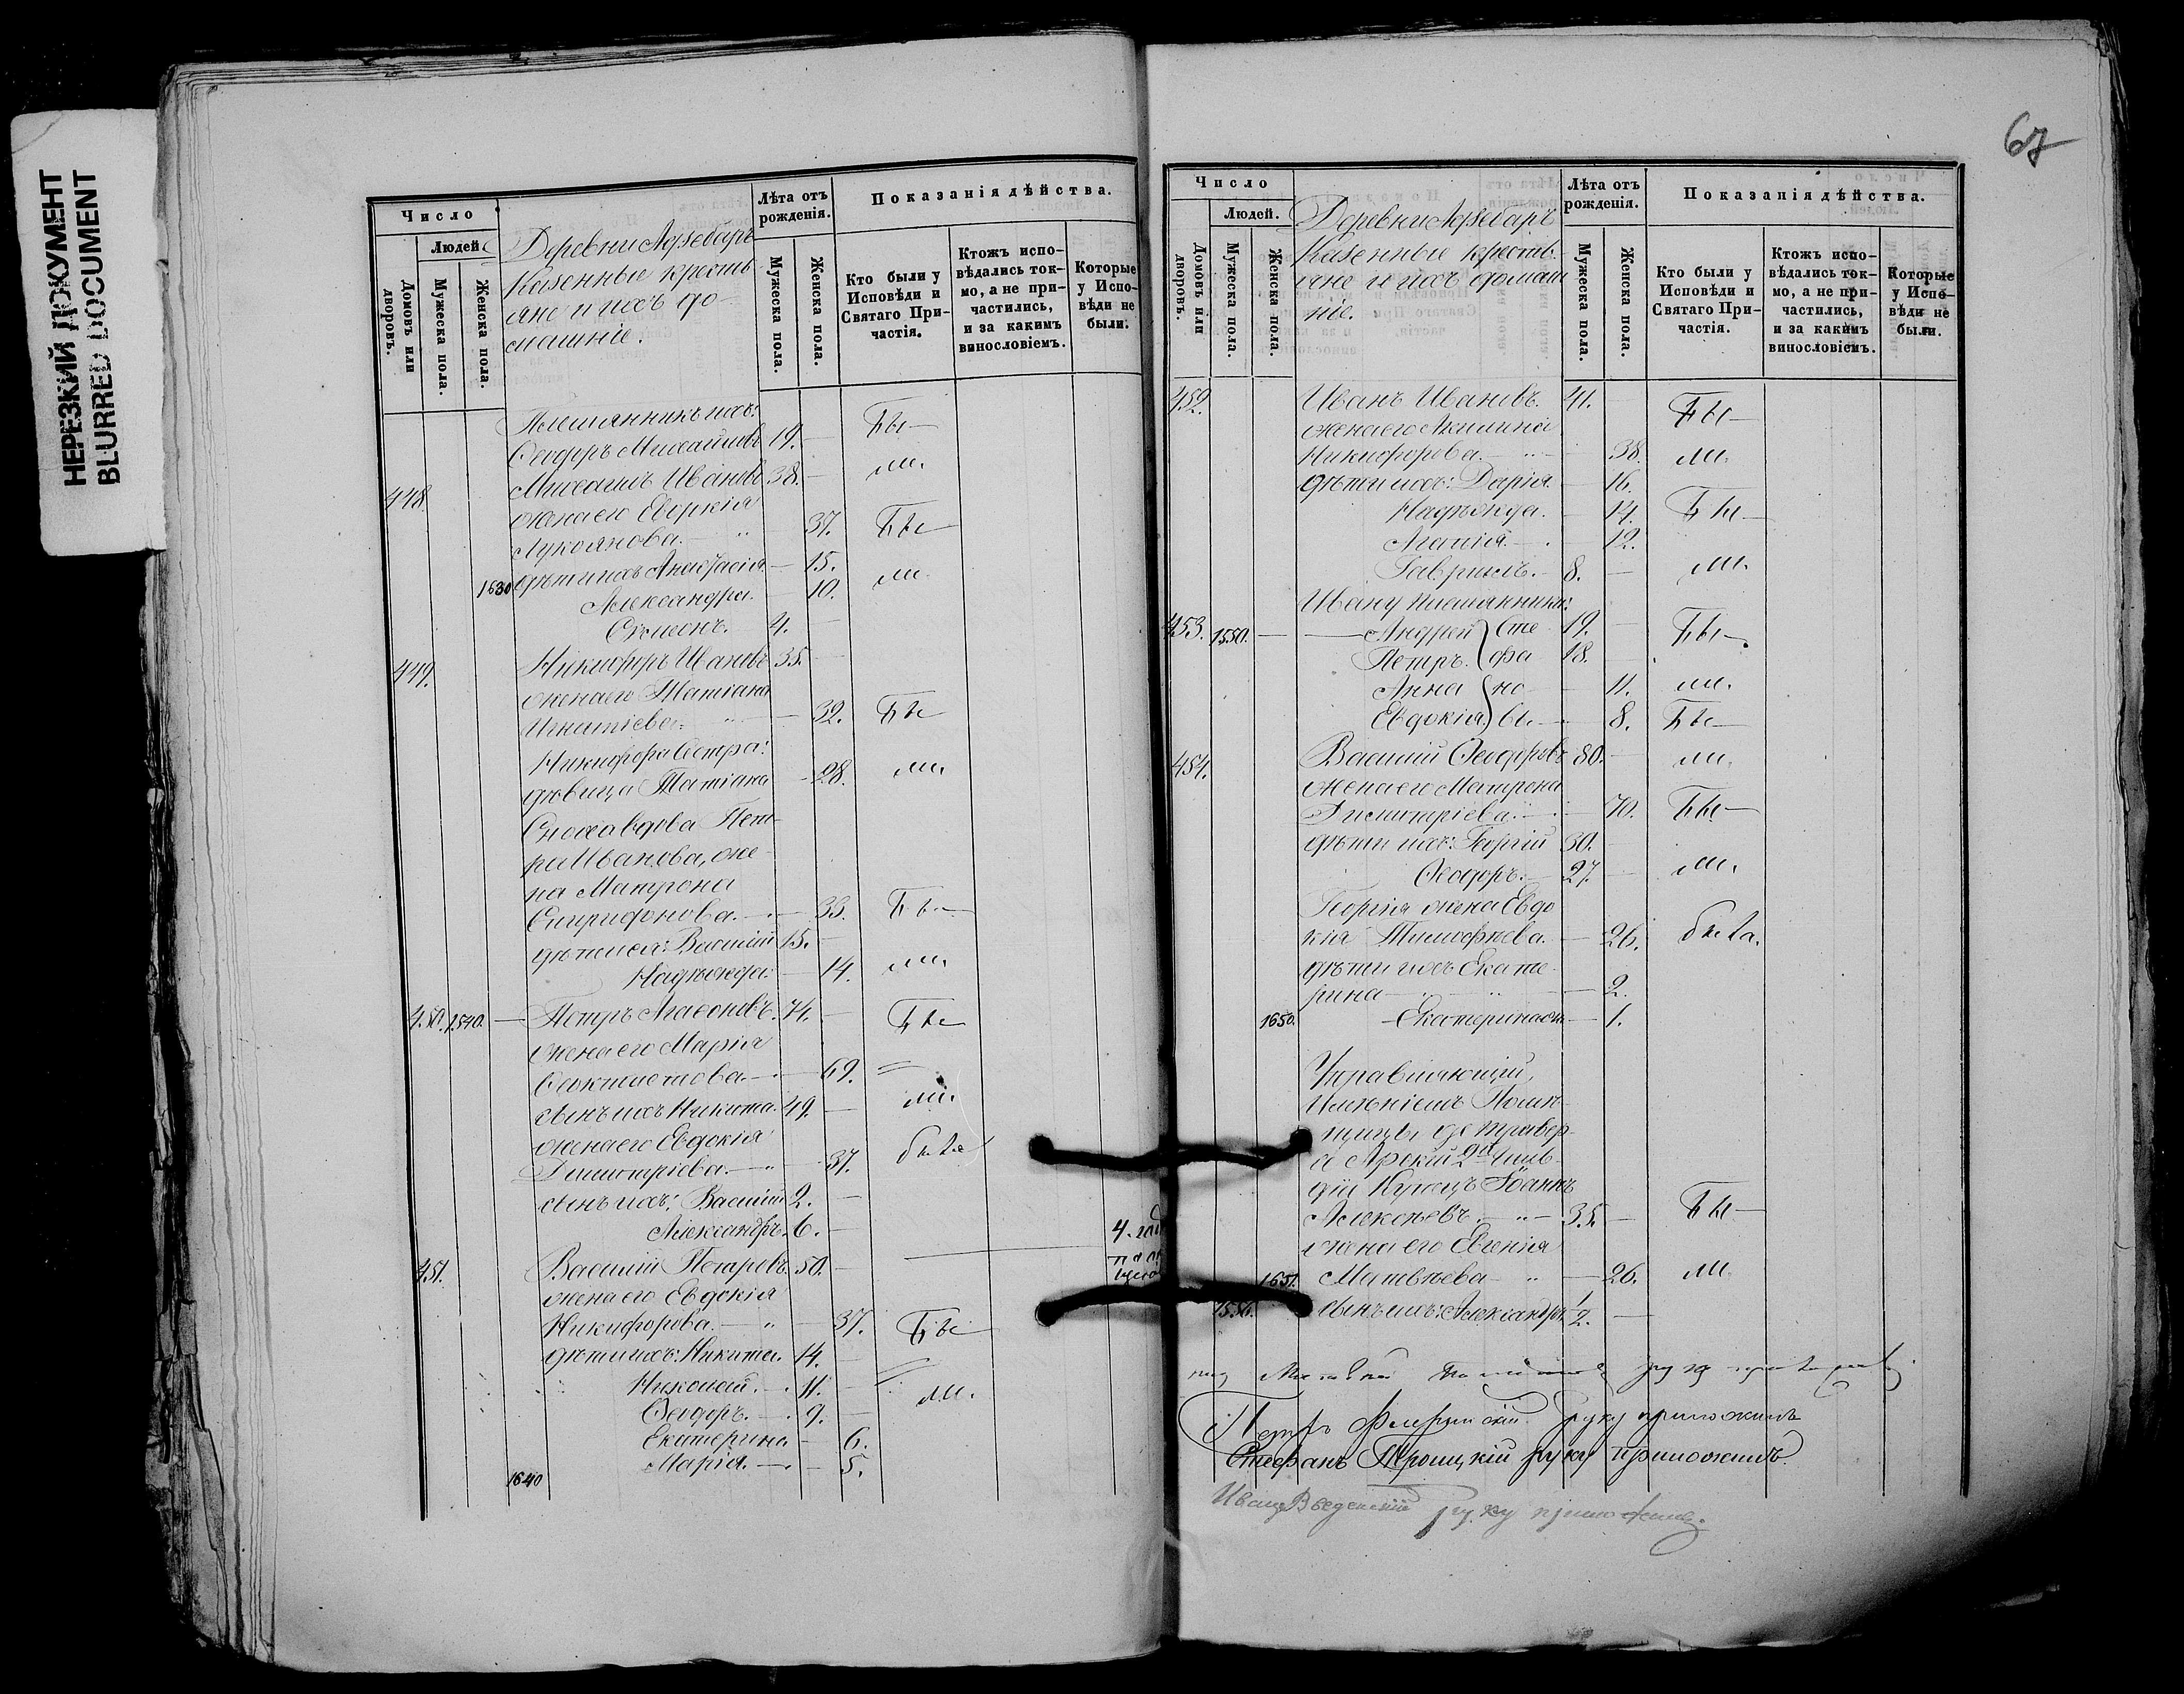 НЕРЕЗКИЙ ДОКУМЕНТ
BLURRED DOCUMENT
Число
Людей.
Домовъ или дворовъ.
Мужеска пола.
Женска пола.
Казенные кресть-
яне и ихъ до-
машніе.
Лѣта отъ рожденія.
Мужеска пола.
Женска пола.
Показанія дѣйства.
Кто были у Исповѣди и Святаго Причастія.
Ктожъ исповѣдались токмо, а не причастились, и за какимъ винословіемъ.
Которые у Исповѣди не были.
Племянникъ ихъ:
Ѳеодоръ Михайловъ 19. Бы-
448. Михаилъ Ивановъ 38. ли.
жена его Евдокія
Лукоянова. 37. Бы-
1630 дѣти ихъ Анастасія 15.
Александра. 10. ли.
Симеонъ. 4.
449. Никифоръ Ивановъ 35.
жена его Татіана
Игнатіева. 32. Бы-
Никифора сестра:
дѣвица Татіана 28. ли.
Сноха вдова Пет-
ра Иванова, же-
на Матрона
Спиридонова. 33. Бы-
дѣти ея: Василій 15.
Надежда. 14. ли.
450. 1540. Петръ 74. Бы-
жена его Марія
69.
сынъ ихъ Никита. 49. ли.
жена его Евдокія
Димитріева. 37. была
сынъ ихъ: Василій 2.
Александръ. 6.
451. Василій Петровъ. 50. 4. год
жена его Евдокія
Никифорова. 37. Бы-
дѣти ихъ: Никита. 14.
Николай. 11. ли.
Ѳеодоръ. 9.
Екатерина 6.
1640 Марія. 5.
67
Число
Людей.
Домовъ или дворовъ.
Мужеска пола.
Женска пола.
Казенные кресть-
яне и ихъ домаш
ніе.
Лѣта отъ рожденія.
Мужеска пола.
Женска пола.
Показанія дѣйства.
Кто были у Исповѣди и Святаго Причастія.
Ктожъ исповѣдались токмо, а не причастились, и за какимъ винословіемъ.
Которые у Исповѣди не были.
452. Иванъ Ивановъ. 41. Бы-
жена его Акилина
Никифорова. 38. ли.
дѣти ихъ: Дарія. 16.
Надежда. 14. Бы-
Агапія. 12.
Гавриилъ. 8. ли.
Ивану племянники:
453. 1550. Андрей Сте 19. Бы-
Петръ. фа 18.
Анна но 11. ли.
Евдокія. вы 8. Бы-
454. Василій Ѳеодоровъ 80. ли.
жена его Матрона
Димитріева. 70. Бы-
дѣти ихъ: Георгій 30.
Ѳеодоръ. 27. ли.
Георгія жена Евдо
кія Тимофѣева. 26. была.
дѣти ихъ Екате-
рина 2.
1650. Екатерина 1.
Управляющій
имѣніемъ Помѣ-
щицы де Травер-
се 2й Гиль-
діи Купецъ Іоаннъ
Алексѣевъ. 35. Бы-
жена его Евгенія
1651. Матвѣева 26. ли
1556. сынъ ихъ: Александръ 1/2.
Петръ руку приложилъ
Стефанъ Троицкій руку приложилъ.
Иванъ Введенскій руку приложилъ.